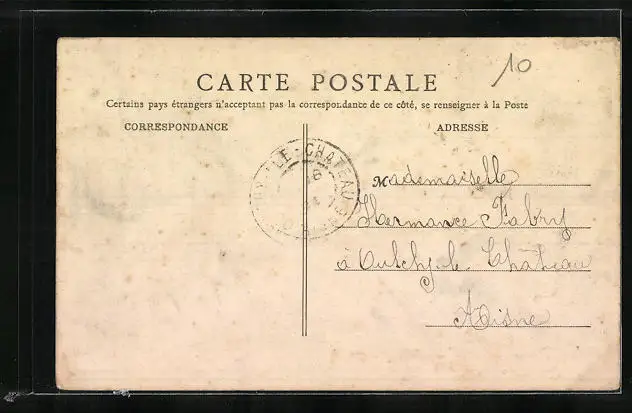 10
CARTE POSTALE
Certains pays étrangers n'acceptant pas la correspondance de ce côté, se renseigner à la Poste
CORRESPONDANCE
ADRESSE
LE-CHATEAU
Mademoiselle
Hermance Fabry
à Oulchy-le-Château
Aisne